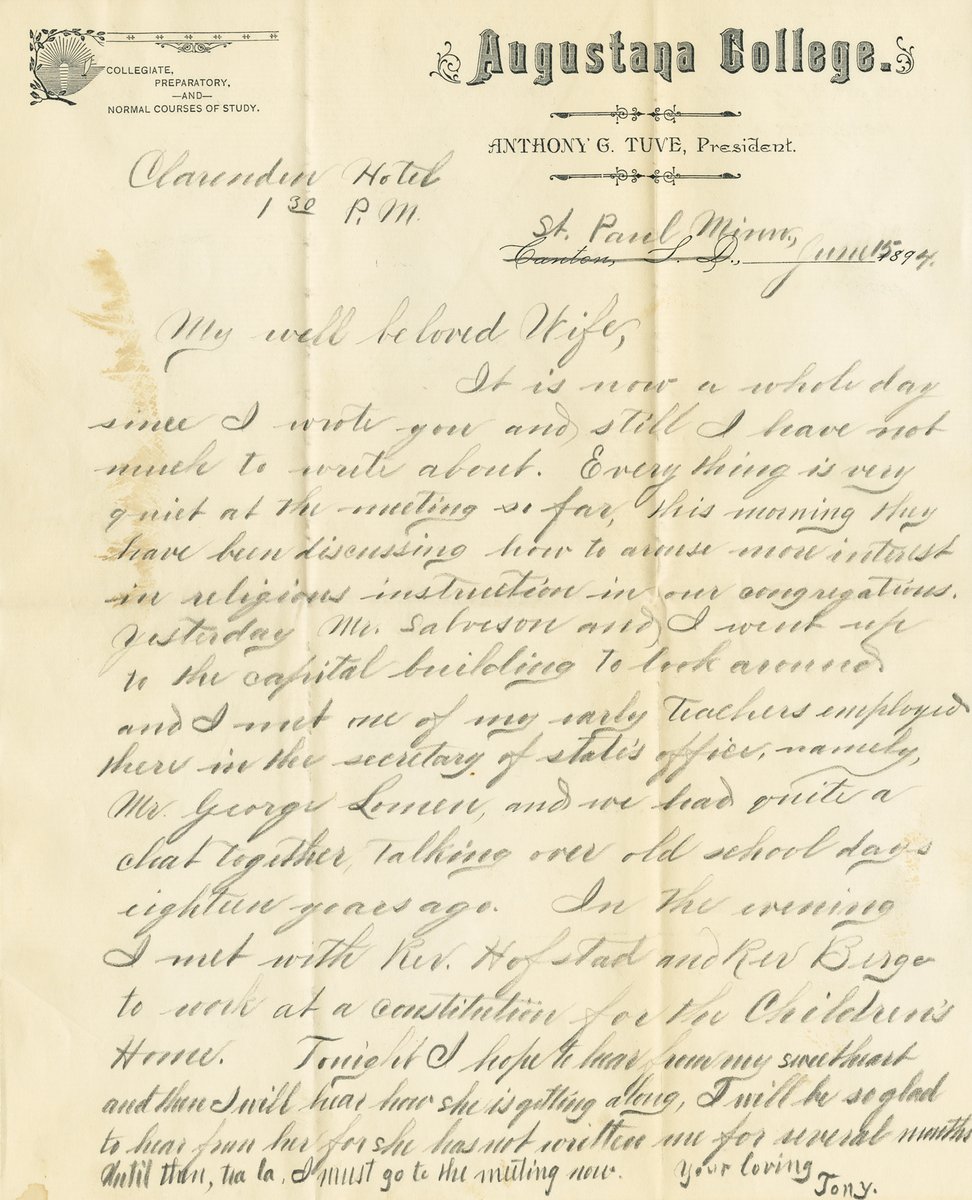 COLLEGIATE,
PREPARATORY,
—AND—
NORMAL COURSES OF STUDY.
Augustana College.
ANTHONY G. TUVE, President.
Clarenden Hotel
1 30 P. M.
St. Paul Minn.,
Canton, S. D., June 15 1894.
My well beloved Wife,
It is now a whole day
since I wrote you and still I have not
much to write about. Everything is very
quiet at the meeting so far, this morning they
have been discussing how to arouse more interest
in religious instruction in our congregations.
Yesterday Mr. Salveson and I went up
to the capital building to look around
and I met one of my early teachers employed
there in the secretary of state's office, namely,
Mr. George Lomen, and we had quite a
chat together, talking over old school days
eighteen years ago. In the evening
I met with Rev. Hofstad and Rev Berge
to work at a constitution for the Children's
Home. Tonight I hope to hear from my sweetheart
and then I will hear how she is getting along, I will be so glad
to hear from her for she has not written me for several months
Until then, tra la, I must go to the meeting now. Your loving
Tony.